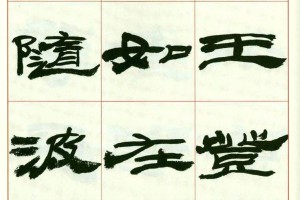 王
如在
隨波